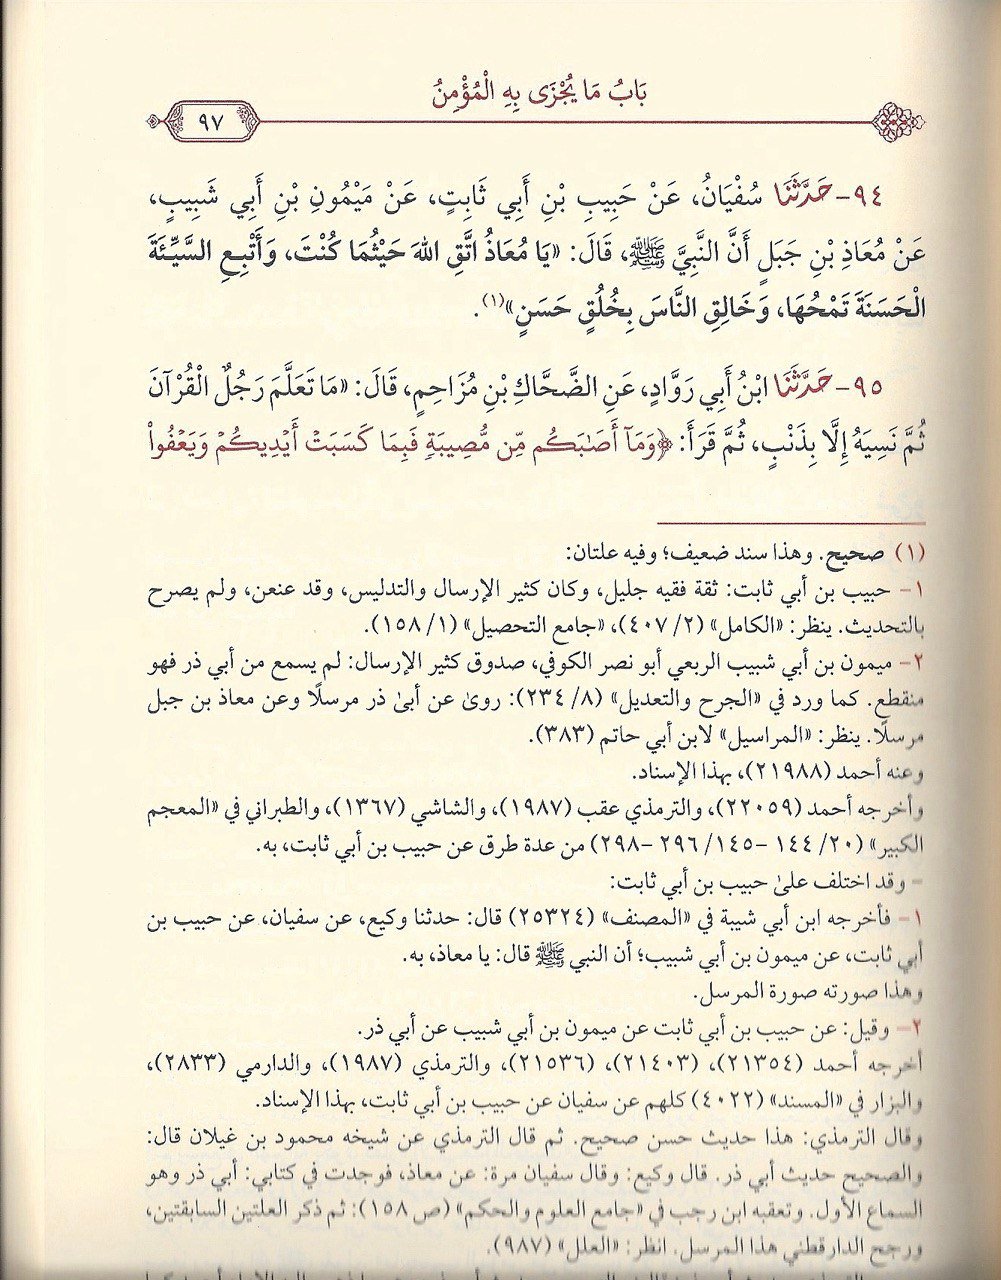 بَابُ مَا يُجْزَى بِهِ الْمُؤْمِنُ
٩٧
٩٤- حَدَّثَنَا سُفْيَانُ، عَنْ حَبِيبِ بْنِ أَبِي ثَابِتٍ، عَنْ مَيْمُونِ بْنِ أَبِي شَبِيبٍ،
عَنْ مُعَاذِ بْنِ جَبَلٍ أَنَّ النَّبِيَّ ﷺ، قَالَ: «يَا مُعَاذُ اتَّقِ اللهَ حَيْثُمَا كُنْتَ، وَأَتْبِعِ السَّيِّئَةَ
الْحَسَنَةَ تَمْحُهَا، وَخَالِقِ النَّاسَ بِخُلُقٍ حَسَنٍ»(١).
٩٥- حَدَّثَنَا ابْنُ أَبِي رَوَّادٍ، عَنِ الضَّحَّاكِ بْنِ مُزَاحِمٍ، قَالَ: «مَا تَعَلَّمَ رَجُلٌ الْقُرْآنَ
ثُمَّ نَسِيَهُ إِلَّا بِذَنْبٍ، ثُمَّ قَرَأَ: ﴿وَمَآ أَصَٰبَكُم مِّن مُّصِيبَةٖ فَبِمَا كَسَبَتۡ أَيۡدِيكُمۡ وَيَعۡفُواْ
(١) صحيح. وهذا سند ضعيف؛ وفيه علتان:
١- حبيب بن أبي ثابت: ثقة فقيه جليل، وكان كثير الإرسال والتدليس، وقد عنعن، ولم يصرح
بالتحديث. ينظر: «الكامل» (٢/ ٤٠٧)، «جامع التحصيل» (١/ ١٥٨).
٢- ميمون بن أبي شبيب الربعي أبو نصر الكوفي، صدوق كثير الإرسال: لم يسمع من أبي ذر فهو
منقطع. كما ورد في «الجرح والتعديل» (٨/ ٢٣٤): روىٰ عن أبىٰ ذر مرسلًا وعن معاذ بن جبل
مرسلًا. ينظر: «المراسيل» لابن أبي حاتم (٣٨٣).
وعنه أحمد (٢١٩٨٨)، بهذا الإسناد.
وأخرجه أحمد (٢٢٠٥٩)، والترمذي عقب (١٩٨٧)، والشاشي (١٣٦٧)، والطبراني في «المعجم
الكبير» (٢٠/ ١٤٤ -١٤٥/ ٢٩٦ -٢٩٨) من عدة طرق عن حبيب بن أبي ثابت، به.
- وقد اختلف علىٰ حبيب بن أبي ثابت:
١- فأخرجه ابن أبي شيبة في «المصنف» (٢٥٣٢٤) قال: حدثنا وكيع، عن سفيان، عن حبيب بن
أبي ثابت، عن ميمون بن أبي شبيب؛ أن النبي ﷺ قال: يا معاذ، به.
وهذا صورته صورة المرسل.
٢- وقيل: عن حبيب بن أبي ثابت عن ميمون بن أبي شبيب عن أبي ذر.
أخرجه أحمد (٢١٣٥٤)، (٢١٤٠٣)، (٢١٥٣٦)، والترمذي (١٩٨٧)، والدارمي (٢٨٣٣)،
والبزار في «المسند» (٤٠٢٢) كلهم عن سفيان عن حبيب بن أبي ثابت، بهذا الإسناد.
وقال الترمذي: هذا حديث حسن صحيح. ثم قال الترمذي عن شيخه محمود بن غيلان قال:
والصحيح حديث أبي ذر. قال وكيع: وقال سفيان مرة: عن معاذ، فوجدت في كتابي: أبي ذر وهو
السماع الأول. وتعقبه ابن رجب في «جامع العلوم والحكم» (ص ١٥٨): ثم ذكر العلتين السابقتين،
ورجح الدارقطني هذا المرسل. انظر: «العلل» (٩٨٧).